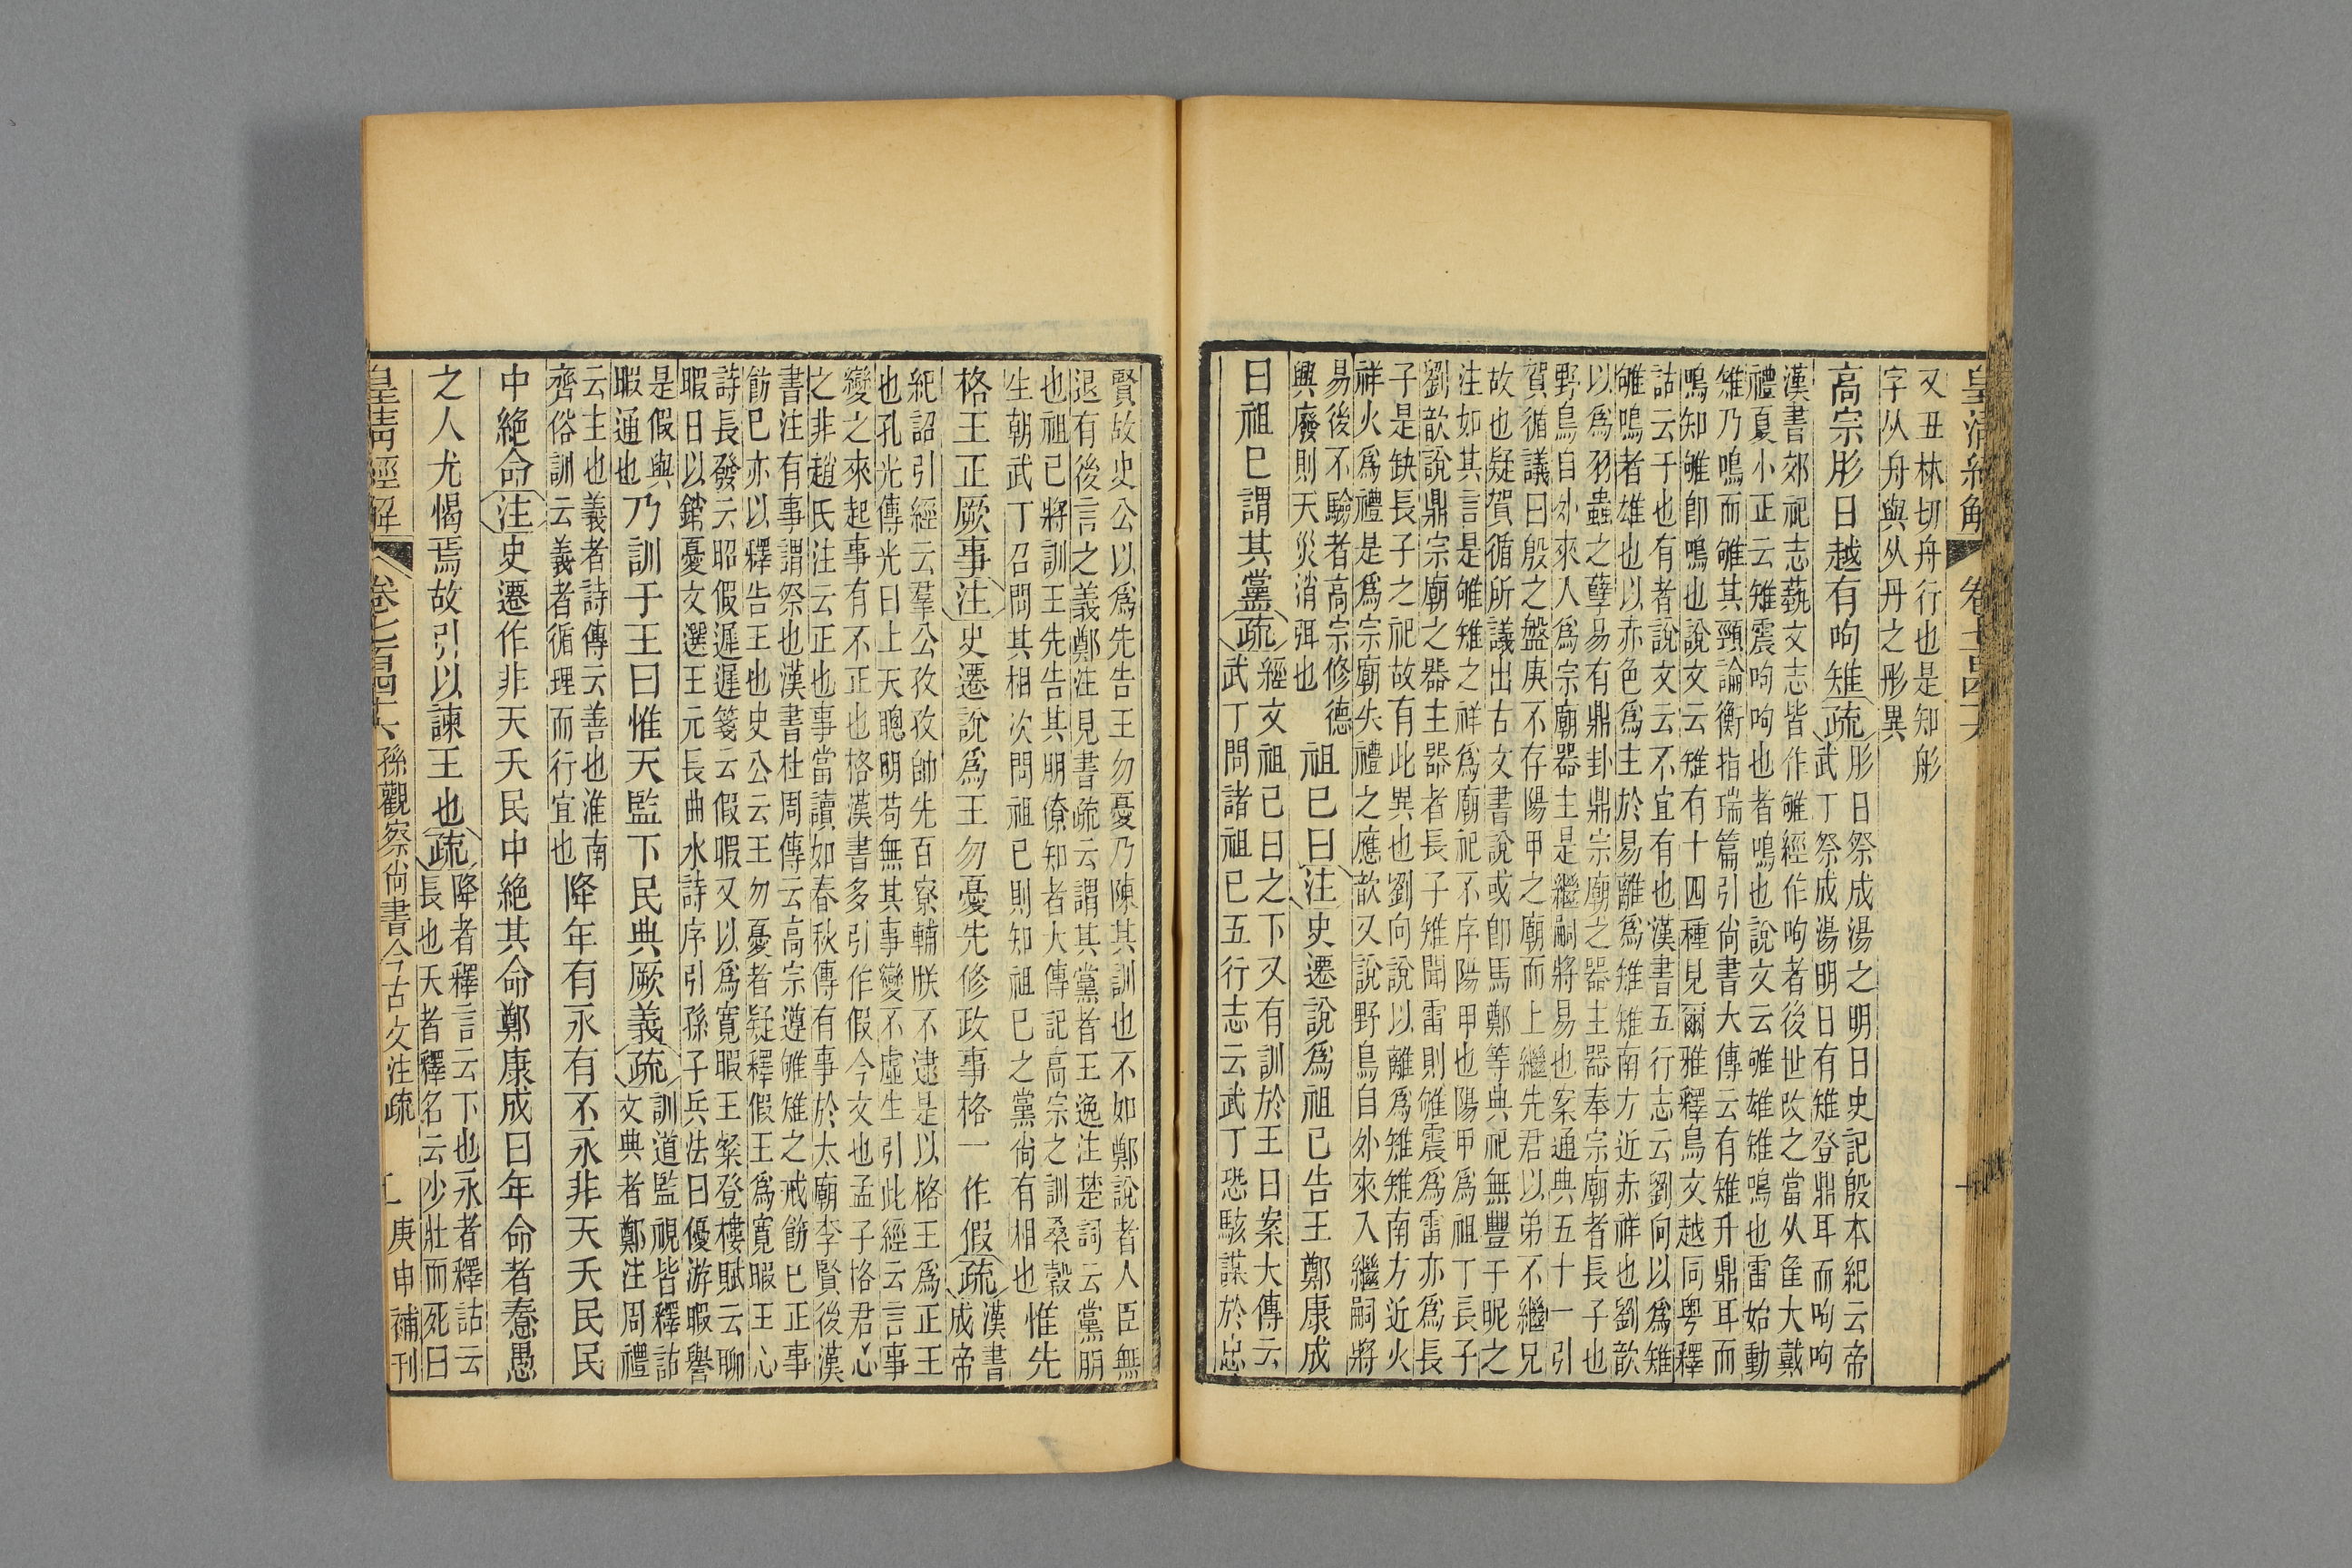 皇清經解 卷七百四十六
又丑林切舟行也是知彤
字从舟與从丹之彤異
高宗肜日越有呴雉疏
肜日祭成湯之明日史記殷本紀云帝
武丁祭成湯明日有雉登鼎耳而呴呴
漢書郊祀志蓺文志皆作雊經作呴者後世改之當从隹大戴
禮夏小正云雉震呴呴也者鳴也說文云雊雄雉鳴也雷始動
雉乃鳴而雊其頸論衡指瑞篇引尙書大傳云有雉升鼎耳而
鳴知雊卽鳴也說文云雉有十四種見爾雅釋鳥文越同粤釋
詁云于也有者說文云不宜有也漢書五行志云劉向以爲雉
雊鳴者雄也以赤色爲主於易離爲雉雉南方近赤祥也劉歆
以爲羽蟲之孽易有鼎卦鼎宗廟之器主器奉宗廟者長子也
野鳥自外來入爲宗廟器主是繼嗣將易也案通典五十一引
賀循議曰殷之盤庚不存陽甲之廟而上繼先君以弟不繼兄
故也疑賀循所議出古文書說或卽馬鄭等典祀無豐于昵之
注如其言是雊雉之祥爲廟祀不序陽甲也陽甲爲祖丁長子
劉歆說鼎宗廟之器主器者長子雉聞雷則雊震爲雷亦爲長
子是缺長子之祀故有此異也劉向說以離爲雉雉南方近火
祥火爲禮是爲宗廟失禮之應歆又說野鳥自外來入繼嗣將
易後不驗者高宗修德
興廢則天災消弭也
祖己曰注史遷說爲祖己告王鄭康成
曰祖巳謂其黨疏
經文祖己曰之下又有訓於王曰案大傳云
武丁問諸祖巳五行志云武丁恐駭謀於忠
賢故史公以爲先告王勿憂乃陳其訓也不如鄭說者人臣無
退有後言之義鄭注見書疏云謂其黨者王逸注楚詞云黨朋
也祖巳將訓王先告其朋僚知者大傳記高宗之訓桑穀
生朝武丁召問其相次問祖己則知祖巳之黨尙有相也
惟先
格王正厥事注史遷說爲王勿憂先修政事格一作假疏
漢書
成帝
紀詔引經云羣公孜孜帥先百寮輔朕不逮是以格王爲正王
也孔光傳光曰上天聰明苟無其事變不虛生引此經云言事
變之來起事有不正也格漢書多引作假今文也孟子格君心
之非趙氏注云正也事當讀如春秋傳有事於太廟李賢後漢
書注有事謂祭也漢書杜周傳云高宗遵雊雉之戒飭巳正事
飭巳亦以釋告王也史公云王勿憂者疑釋假王爲寬暇王心
詩長發云昭假遲遲箋云假暇又以爲寬暇王粲登樓賦云聊
暇日以銷憂文選王元長曲水詩序引孫子兵法曰優游暇譽
是假與
暇通也
乃訓于王曰惟天監下民典厥義疏
訓道監視皆釋詁
文典者鄭注周禮
云主也義者詩傳云善也淮南
齊俗訓云義者循理而行宜也
降年有永有不永非天夭民民
中絶命注史遷作非天夭民中絶其命鄭康成曰年命者惷愚
之人尤愒焉故引以諫王也疏
降者釋言云下也永者釋詁云
長也夭者釋名云少壯而死曰
皇淸經解 卷七百四十六 孫觀察尙書今古文注疏 二 庚申補刊